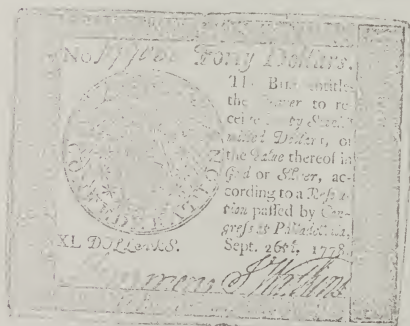 No Forty Dollars.
THIS Bill entitles
the Bearer to re-
ceive Forty Spanish
milled Dollars, or
the Value thereof in
Gold or Silver, ac-
cording to a Resolu-
tion passed by Con-
gress at Philadelphia,
Sept. 26th, 1778.
CONFEDERATION
XL DOLLARS.